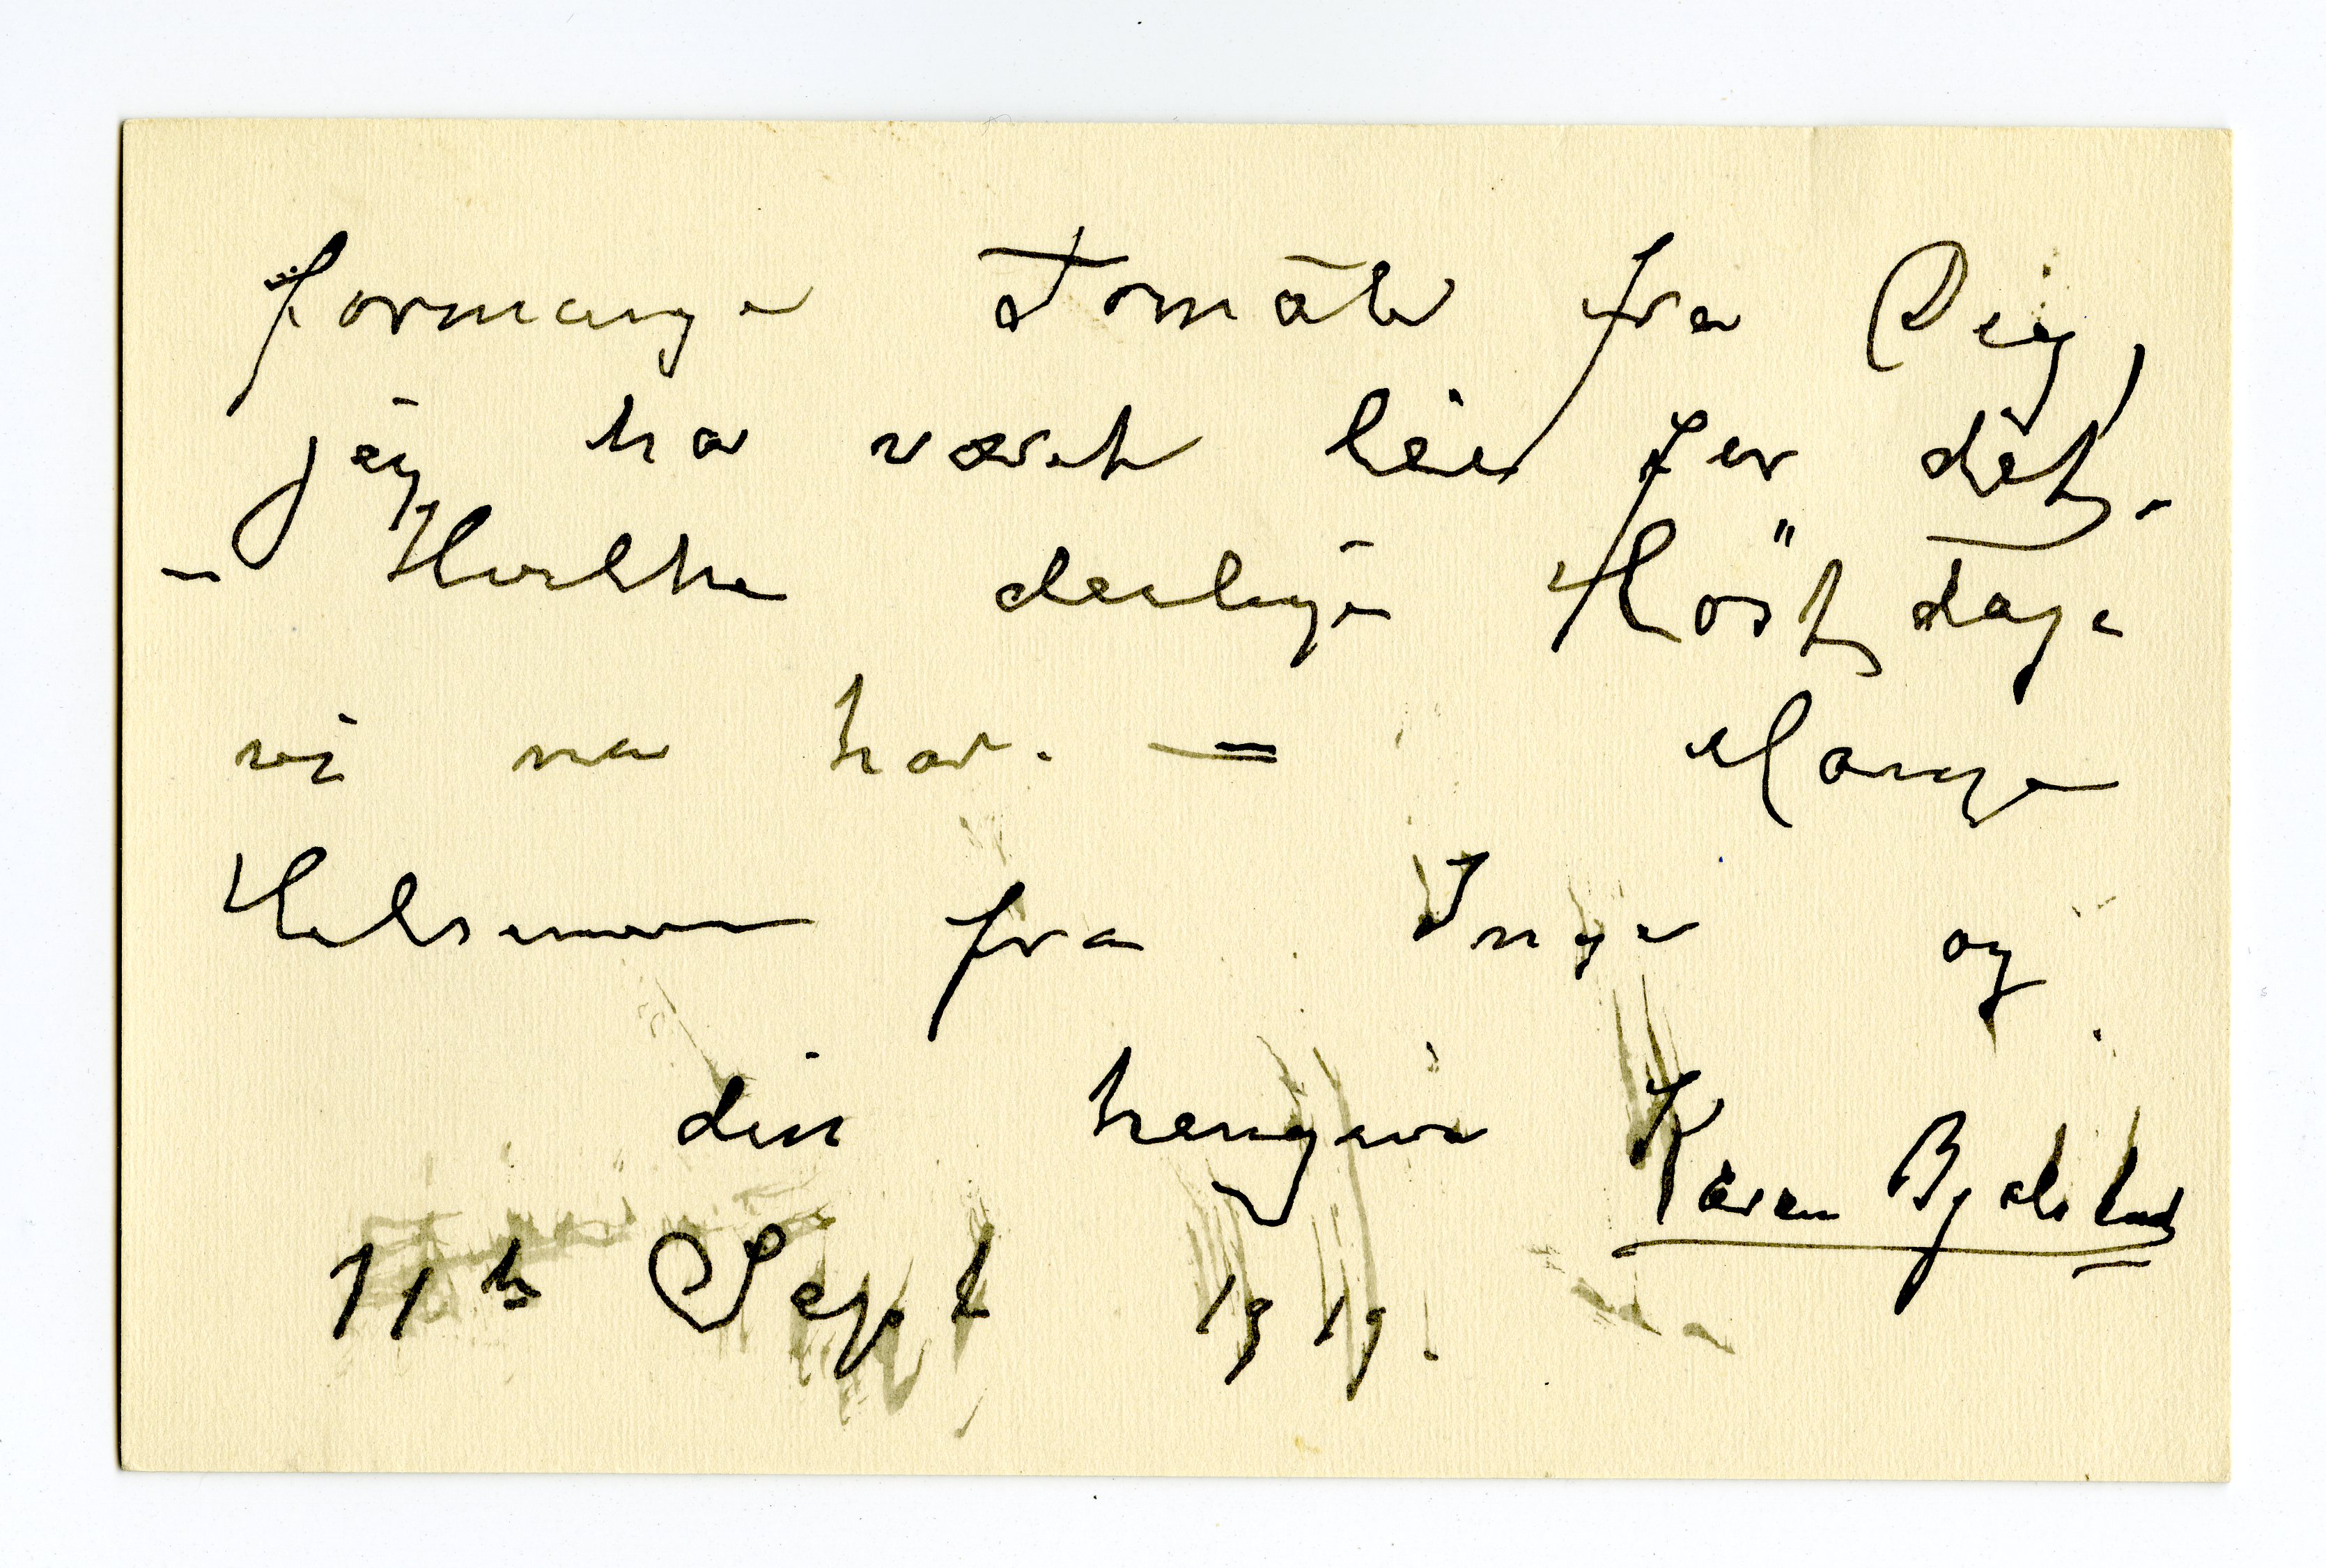 formange Tomåter fra Dig,
jeg har været leie for det.
– Hvilke deilige Høstdage
vi nu har. — Mange
Hilsener fra Inga og
din hengivne Karen Bjølstad
11te Sept 1919.